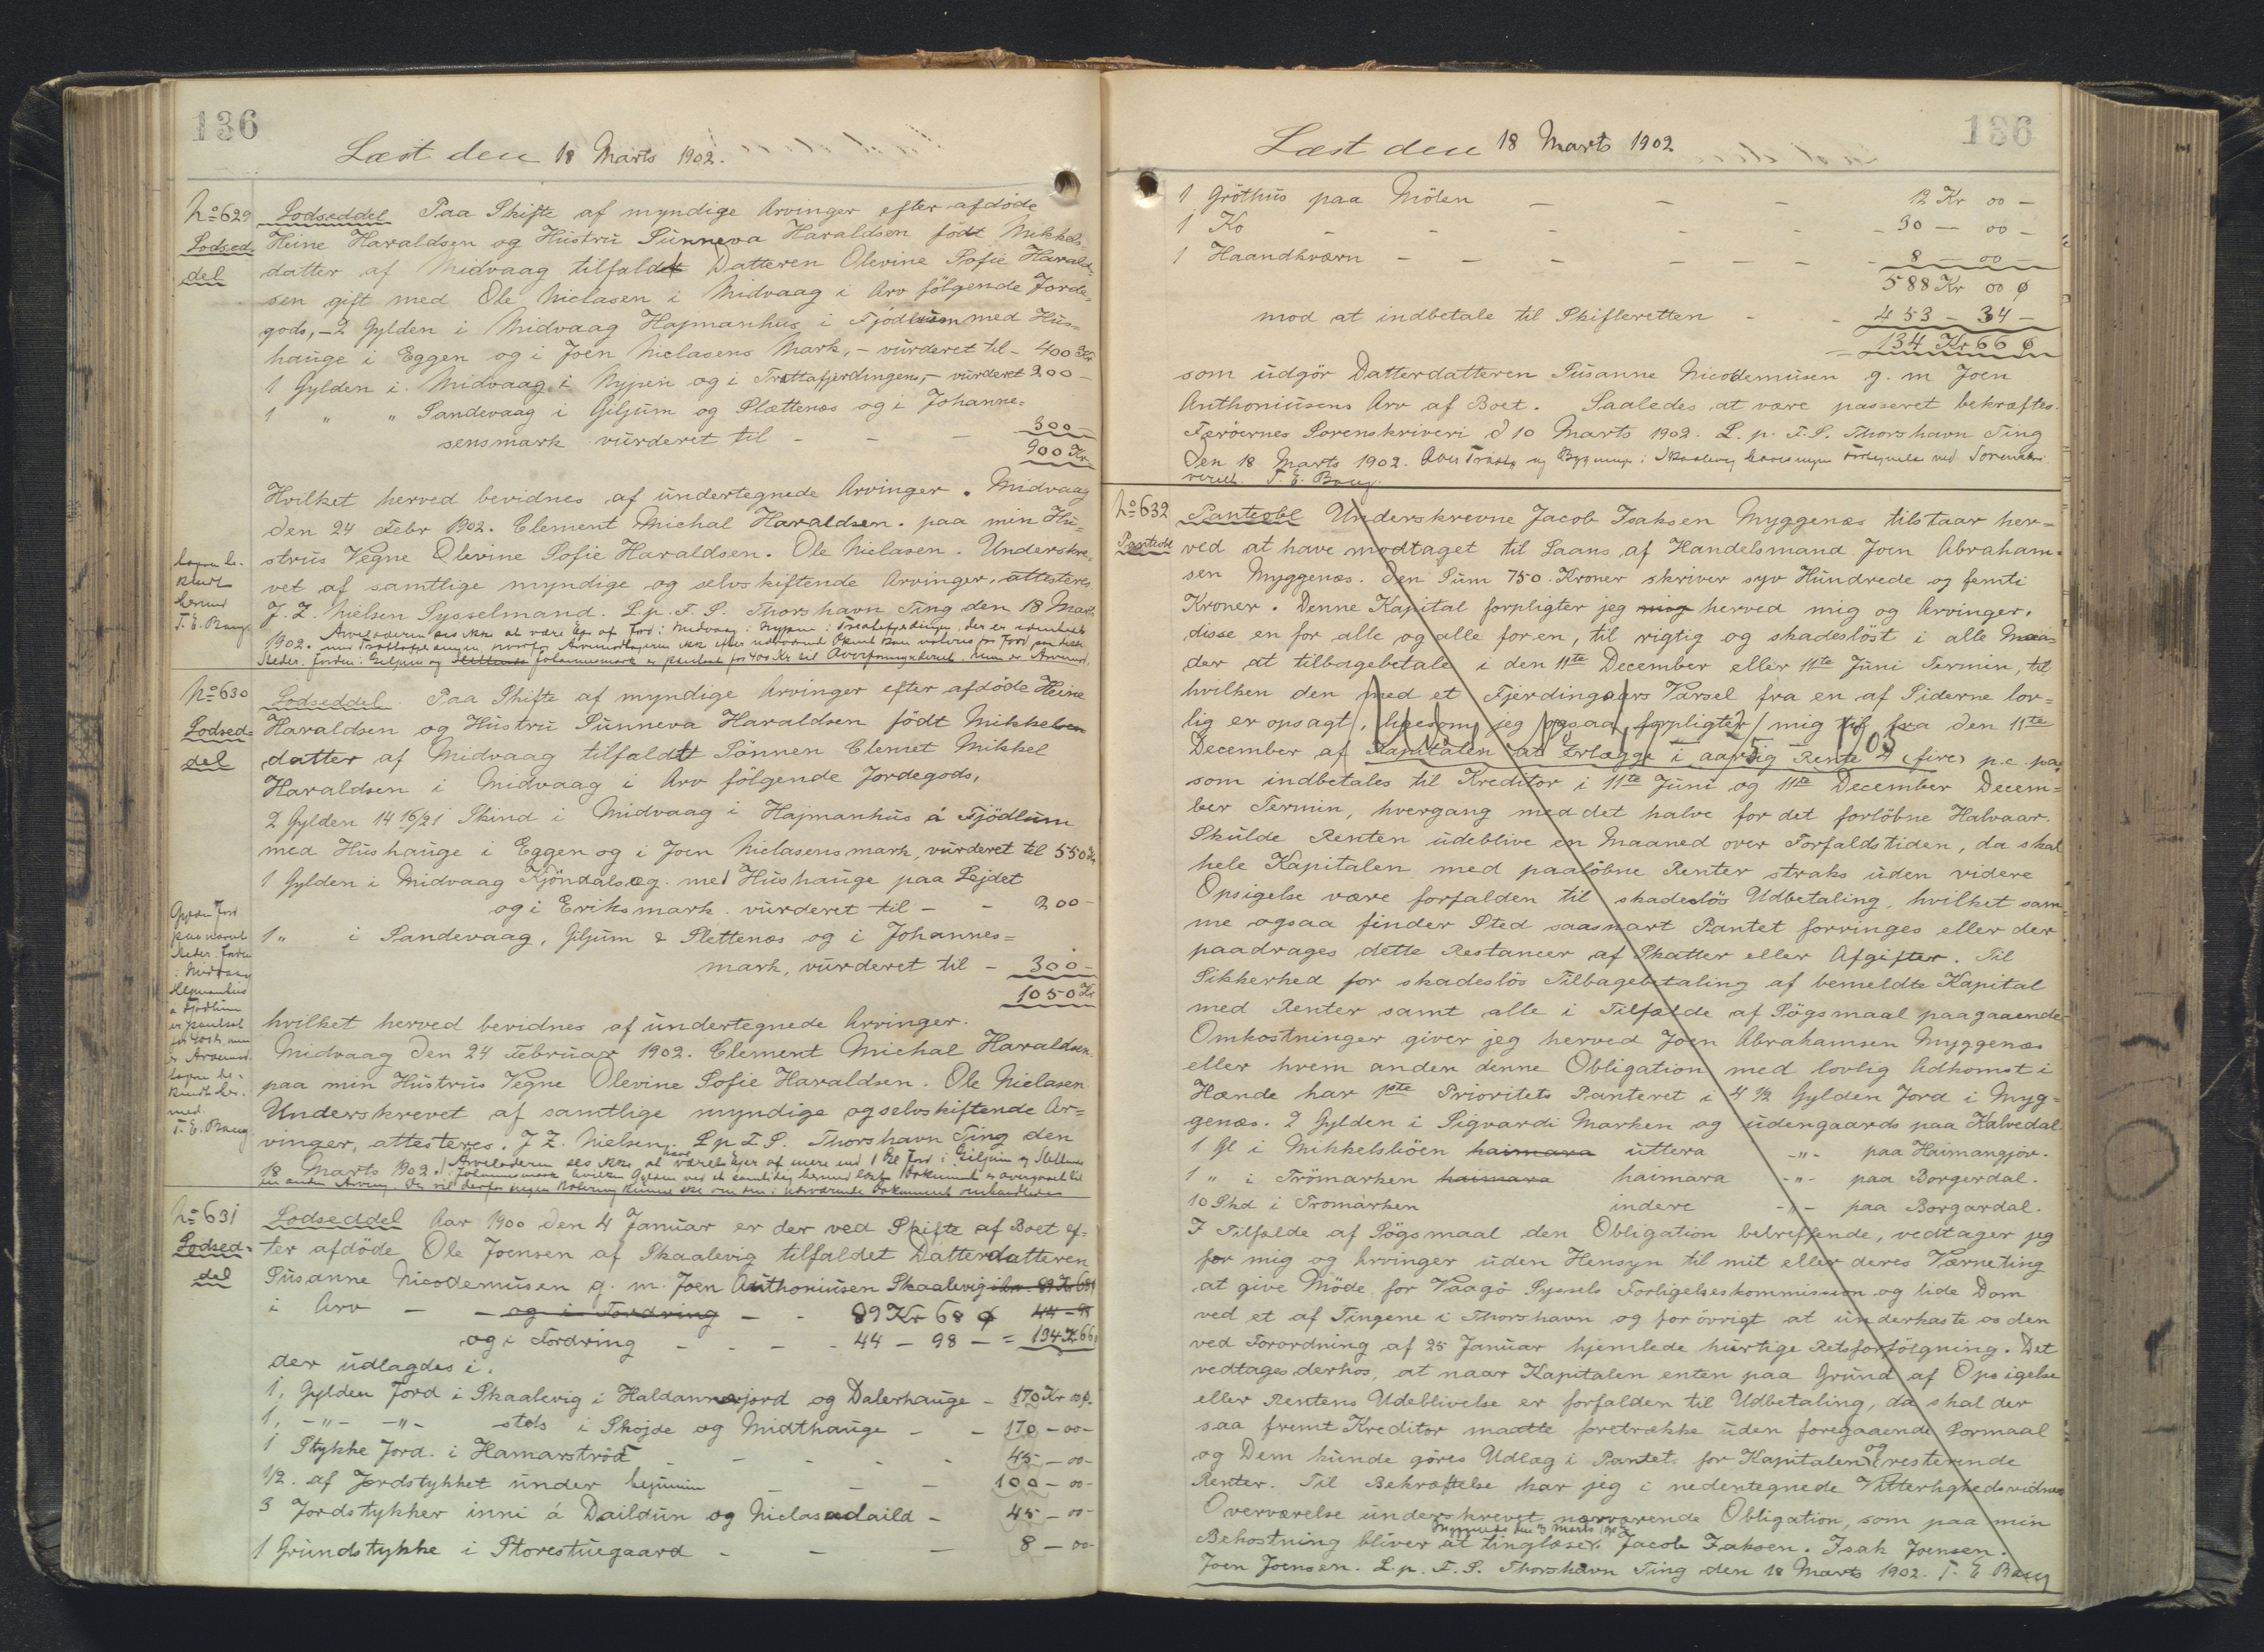 136
Læst den 18 Marts 1902.
No 629 Lodseddel Paa Skifte af myndige Arvinger efter afdöde
Lodsed- Heine Haraldsen og Hustru Sunneva Haraldsen født Mikkels=
del datter af Midvaag tilfaldt Datteren Olevine Sofie Harald-
sen gift med Ole Niclasen i Midvaag i Arv fölgende Jorde-
gods, - 2 Gylden i Midvaag Hajmanhus i Fjödlum med Hus=
hauge i Eggen og i Joen Niclasens Mark, - vurderet til - 400 Kr
1 Gylden i Midvaag i Nypen og i Trøttafjerdingen, - vurderet 200 -
1 " " Sandevaag i Giljum og Slættenæs og i Johanne=
sensmark vurderet til - - - 300 -
900 Kr
Hvilket herved bevidnes af undertegnede Arvinger. Midvaag
den 24 Febr 1902. Clement Michal Haraldsen. paa min Hu=
strus Vegne Olevine Sofie Haraldsen. Ole Niclasen. Underskre-
vet af samtlige myndige og selvskiftende Arvinger, attesteres
J. Z. Nielsen Sysselmand. L. p. F. S. Thorshavn Ting den 18 Marts
1902.
T. E. Baug
No 630 Lodseddel. Paa Skifte af myndige Arvinger efter afdöde Heine
Lodsed= Haraldsen og Hustru Sunneva Haraldsen födt Mikkelsen
del datter af Midvaag tilfaldt Sönnen Clemet Mikkel
Haraldsen i Midvaag i Arv fölgende Jordegods,
2 Gylden 14 16/21 Skind i Midvaag i Hajmanhus á Fjödlum
med Hushauge i Eggen og i Joen Niclasens mark, vurderet til 550 Kr
1 Gylden i Midvaag Kjöndalsæg. med Hushauge paa Lejdet
og i Eriksmark vurderet til - - 200 -
1 " i Sandevaag, Giljum & Slettenæs og i Johannes=
mark, vurderet til - 300 -
1050 Kr
hvilket herved bevidnes af undertegnede Arvinger.
Midvaag den 24 Februar 1902. Clement Michal Haraldsen.
paa min Hustrus Vegne Olevine Sofie Haraldsen. Ole Niclasen
Underskrevet af samtlige myndige og selvskiftende Ar=
vinger, attesteres. J Z. Nielsen. L p F. S. Thorshavn Ting den
18 Marts 1902.
T. E. Baug
No 631 Lodseddel Aar 1900 den 4 Januar er der ved Skifte af Boet ef-
Lodsed= ter afdöde Ole Joensen af Skaalevig tilfaldet Datterdatteren
del Susanne Nicodemusen g. m. Joen Anthoniusen Skaalevig
i Arv - - og i Fordring - - 89 Kr 68 ø 44 - 98
og i Fordring - - - - 44 - 98 - = 134 Kr 66
der udlagdes i.
1, Gylden Jord i Skaalevig i Haldannarjord og Dalerhauge - 170 Kr 00 ø.
1, -"- -"- steds i Skojde og Midthauge - - 170 - 00 -
1 Stykke Jord. i Hamarströd - - - - 45 - 00 -
1/2. af Jordstykket under - - - 100 - 00 -
3 Jordstykker inni á Daildun og Niclasadaild - 45 - 00 -
1 Grundstykke i Storestuegaard - - - 8 - 00 -
136
Læst den 18 Marts 1902
1 Gröthus paa Mölen - - - 12 Kr 00 -
1 Ko - - - - - - 30 - 00 -
1 Haandkværn - - - - - - - 8 - 00 -
588 Kr 00 ø
mod at indbetale til Skifteretten - - 453 - 34 -
134 Kr 66 ø
som udgör Datterdatteren Susanne Nicodemusen g. m Joen
Anthoniusens Arv af Boet. Saaledes at være passeret bekræftes.
Færöernes Sorenskriveri d 10 Marts 1902. L. p. F. S. Thorshavn Ting
Den 18 Marts 1902.
T. E. Baug.
No 632 Panteobl Underskrevne Jacob Isaksen Myggenæs tilstaar her=
Panteobl ved at have modtaget til Laans af Handelsmand Joen Abraham-
sen Myggenæs. den Sum 750. Kroner skriver syv Hundrede og femti
Kroner. Denne Kapital forpligter jeg mig herved mig og Arvinger,
disse en for alle og alle for en, til rigtig og skadeslöst i alle Maa-
der at tilbagebetale i den 11te December eller 11te Juni Termin, til
hvilken den med et Fjerdingaars Varsel fra en af Siderne lov=
lig er opsagt, ligesom jeg ogsaa forpligter mig til fra den 11te
December af Kapitalen at erlægge i aarlig Rente 4 (fire) p.c. pa.
som indbetales til Kreditor i 11te Juni og 11te December Decem=
ber Termin, hvergang med det halve for det forlöbne Halvaar.
Skulde Renten udeblive en Maaned over Forfaldstiden, da skal
hele Kapitalen med paalöbne Renter straks uden videre
Opsigelse være forfalden til skadeslös Udbetaling, hvilket sam=
me ogsaa finder Sted saasnart Pantet forringes eller der
paadrages dette Restancer af Skatter eller Afgifter. Til
Sikkerhed for skadeslös Tilbagebetaling af bemeldte Kapital
med Renter samt alle i Tilfælde af Sögsmaal paagaaende
Omkostninger giver jeg herved Joen Abrahamsen Myggenæs
eller hvem anden denne Obligation med lovlig Adkomst i
Hænde har 1ste Prioritets Panteret i 4 1/2 Gylden Jord i Myg=
genæs. 2 Gylden i Sigvardi Marken og udengaards paa Kalvedal.
1 Gl i Mikkelsböen haimara uttera -"- paa Haimangjör.
1 " i Trömarken haimara haimara -"- paa Borgerdal.
10 Skd i Tromarken indere -"- paa Borgardal.
I Tilfælde af Sögsmaal den Obligation betreffende, vedtager jeg
for mig og Arvinger uden Hensyn til mit eller deres Værneting
at give Möde for Vaagö Syssels Forligelseskommission og lide Dom
ved et af Tingene i Thorshavn og for övrigt at underkaste os den
ved Forordning af 25 Januar hjemlede hurtige Retsforfölgning. Det
vedtages derhos, at naar Kapitalen enten paa Grund af Opsigelse
eller Rentens Udeblivelse er forfalden til Udbetaling, da skal der
saa fremt Kreditor maatte foretrække uden foregaaende Sormaal
og Dem kunde göres Udlæg i Pantet for Kapitalen og resterende
Renter. Til Bekræftelse har jeg i nedentegnede Vitterlighedsvidners
Overværelse underskrevet nærværende Obligation, som paa min
Behostning bliver at tinglæse. Jacob Isaksen. Isak Joensen.
Joen Joensen. L. p. F. S. Thorshavn Ting den 18 Marts 1902. T. E Baug